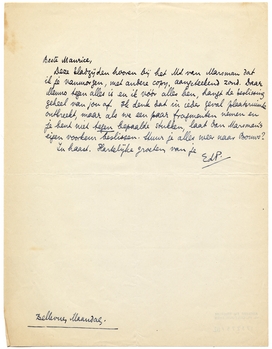 Beste Maurice,
Deze bladzijden hooren bij het Md van Marsman dat
ik je vanmorgen, met andere copy, aangeteekend zond. Daar
Menno tegen alles is en ik vóór alles ben, hangt de beslissing
geheel van jou af. Ik denk dat in ieder geval plaatsruimte
ontbreekt, maar als we een paar fragmenten nemen en
je bent niet tegen bepaalde stukken, laat dan Marsmans
eigen voorkeur beslissen. Stuur je alles weer naar Bouws?
In haast. Hartelijke groeten van je
EdP.
Bellevue, Maandag.